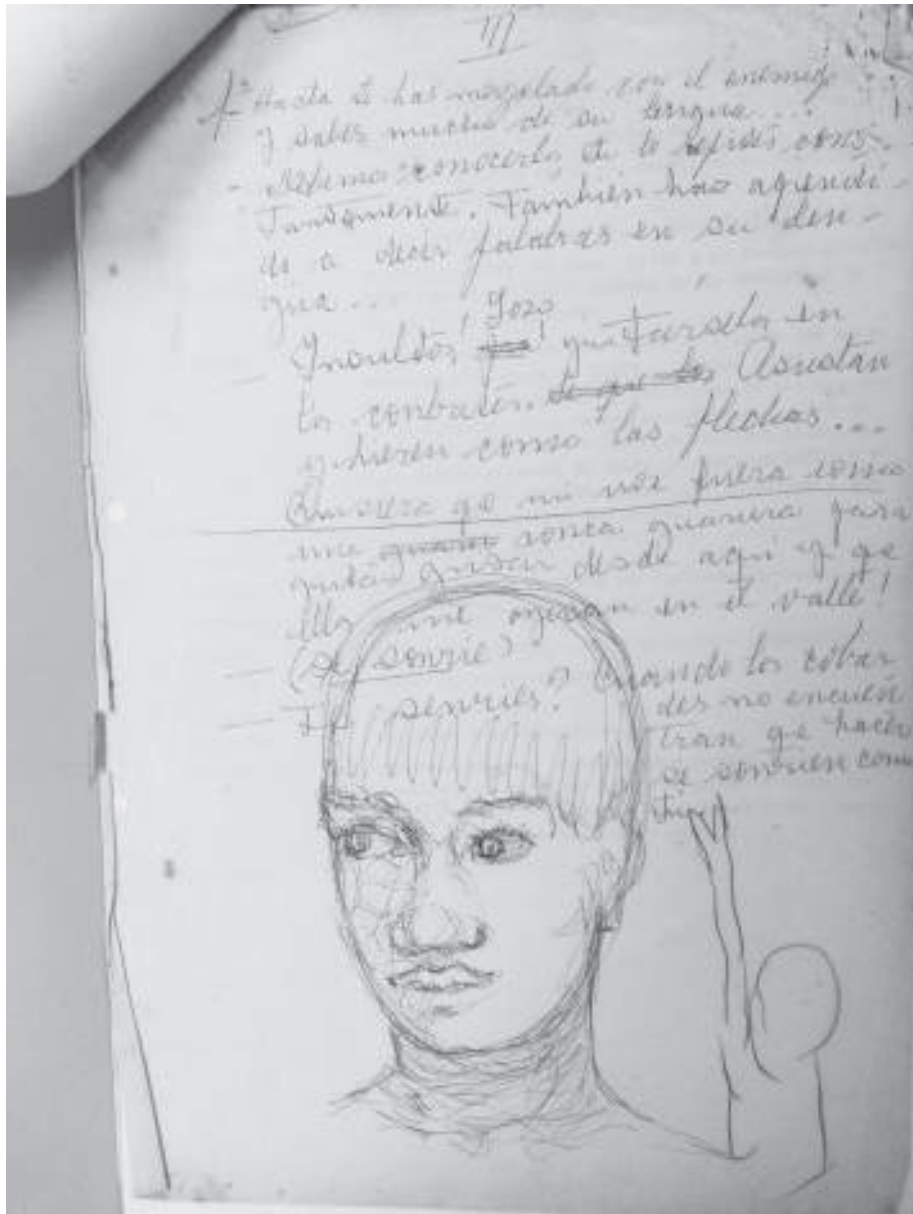 III
Hasta te has mezclado con el enemigo
y sabes mucho de su lengua...
- conocerlos, tu lo repites cons-
tantemente. También has aprendi-
do a decir palabras en su len-
gua...
- Insultos! Yoso gritarselos en
los combates. Asustan
y hieren como las flechas...
Quisiera qe mi voz fuera como
una ronca guarura para
desde aquí y qe
ellos me oyeran en el valle!
- (se sonríe)
- Tu sonries? Cuando los cobar
des no encuen
tran qe hacer
se sonrien como